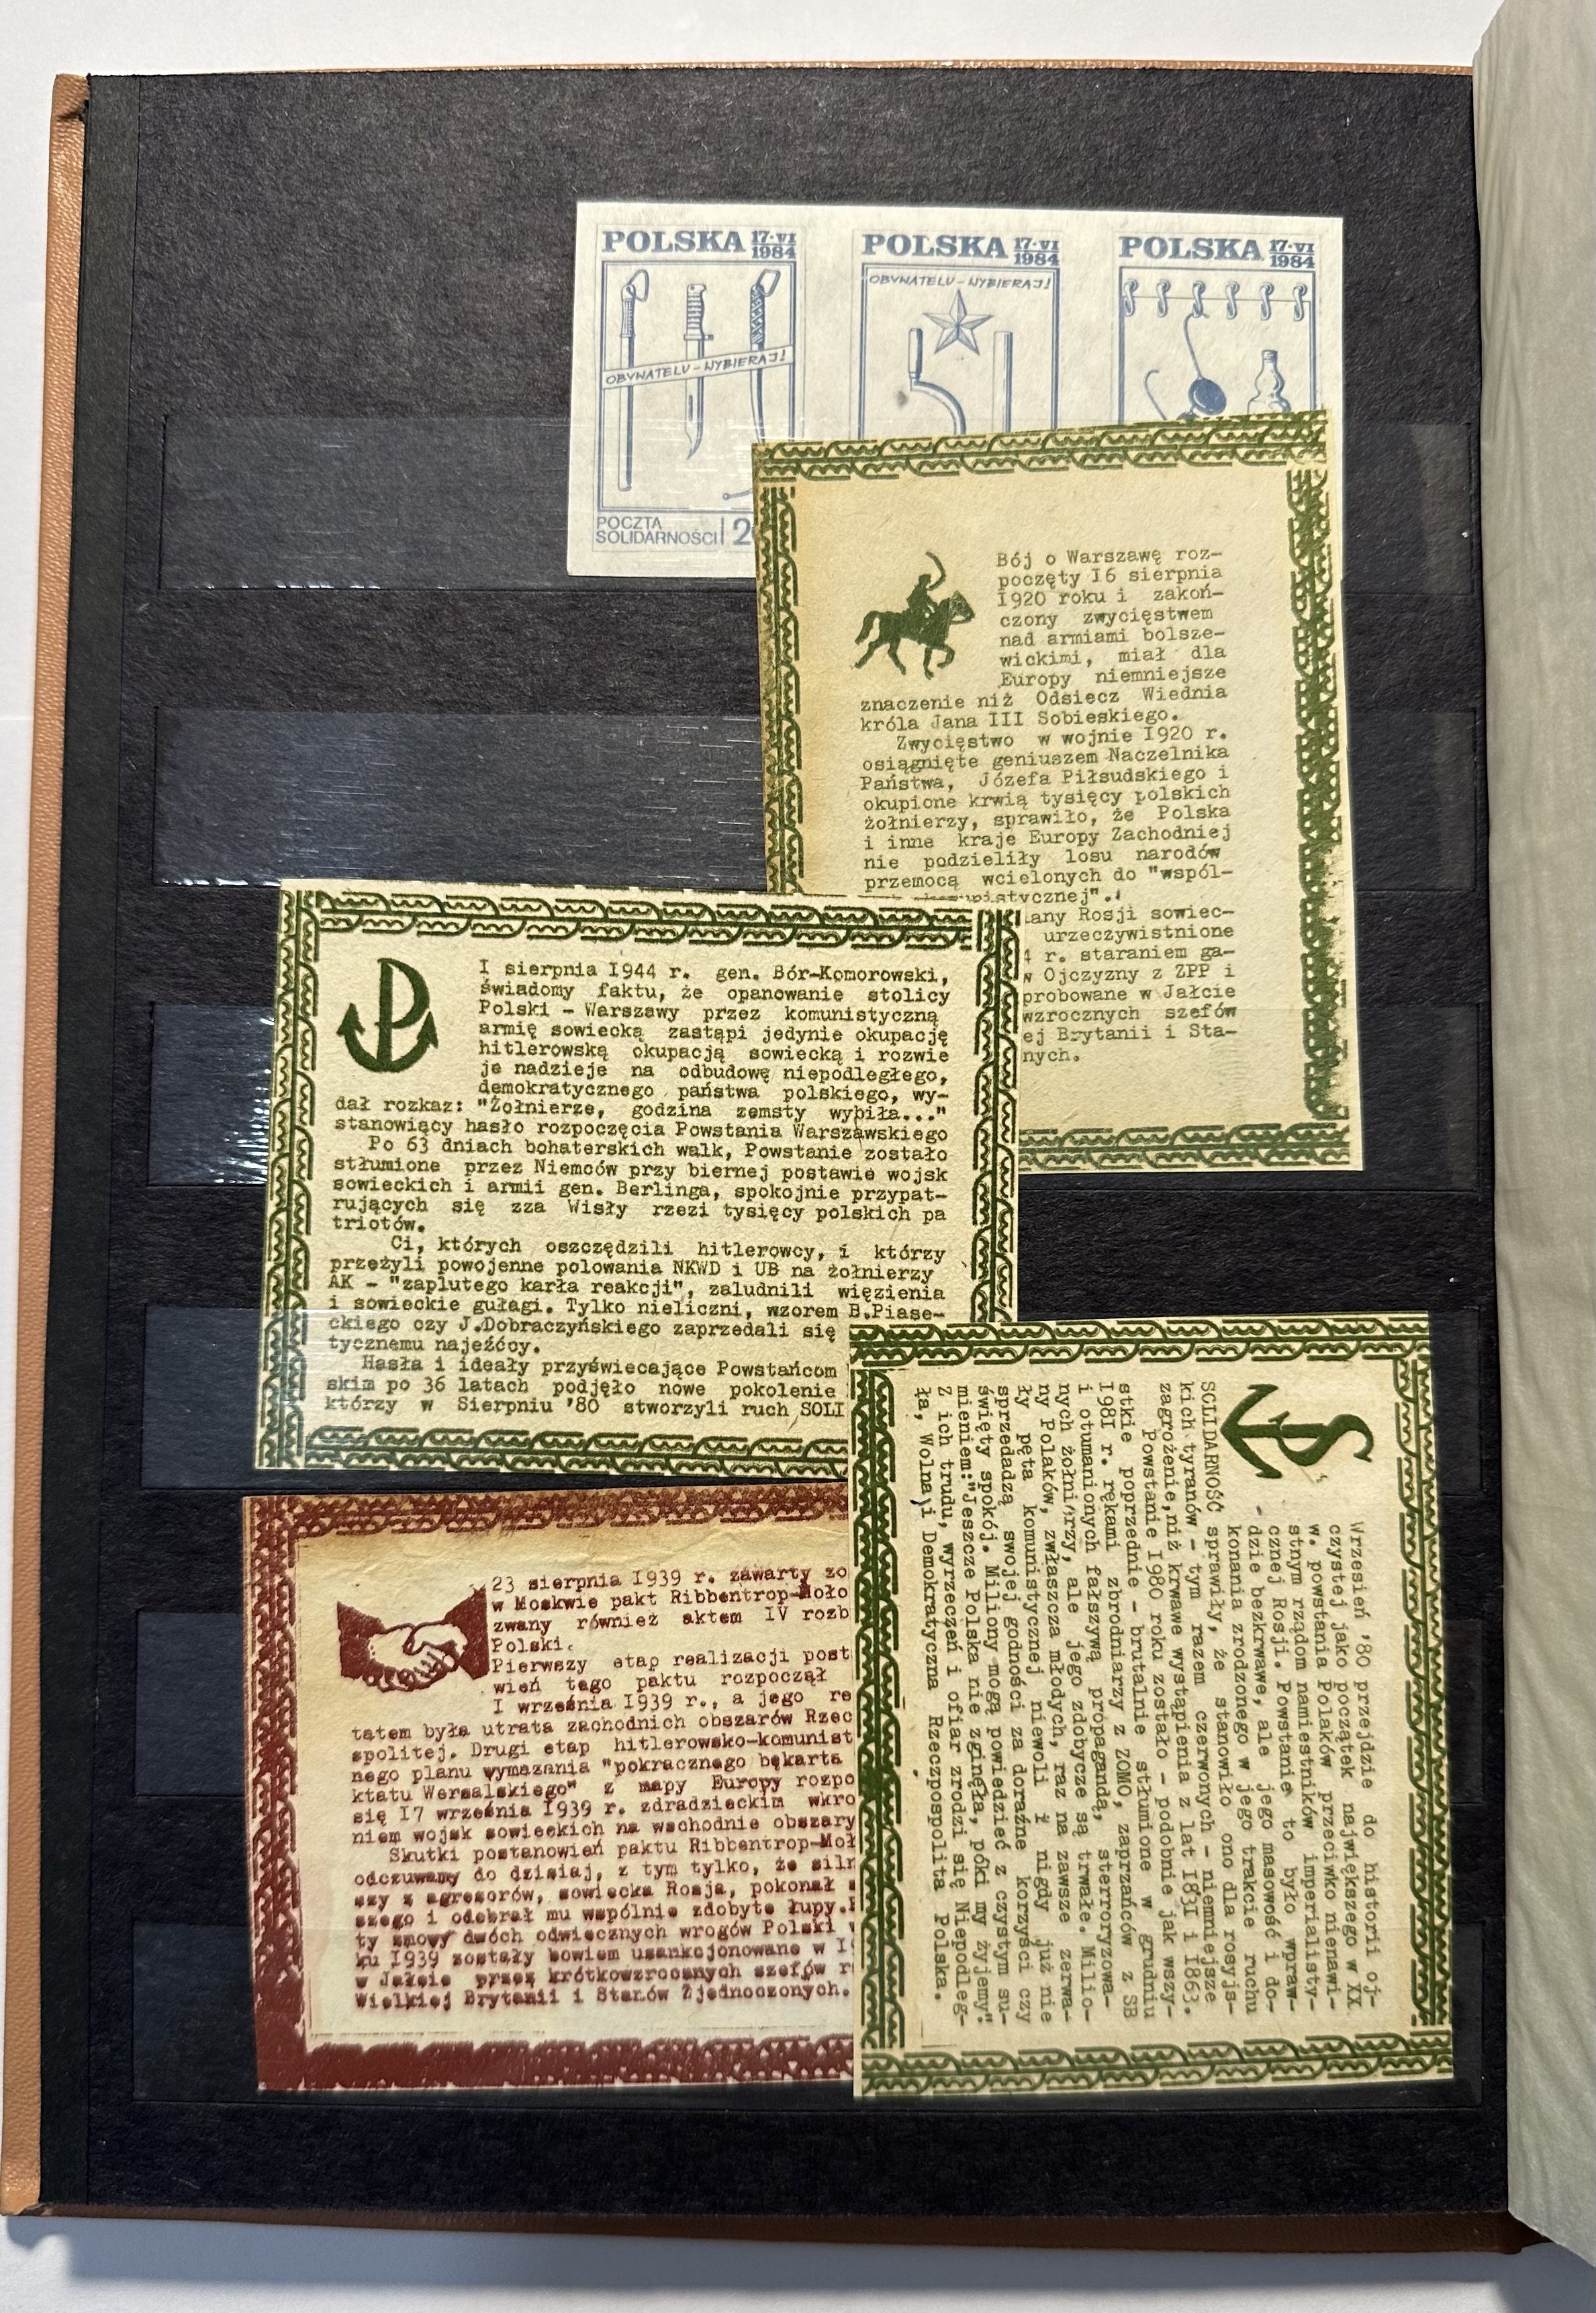 POLSKA 17·VI 1984
OBYWATELU - WYBIERAJ!
POCZTA
SOLIDARNOŚCI 2
POLSKA 17·VI 1984
OBYWATELU - WYBIERAJ!
POLSKA 17·VI 1984
Bój o Warszawę roz-
poczęty I6 sierpnia
I920 roku i zakoń-
czony zwycięstwem
nad armiami bolsze-
wickimi, miał dla
Europy niemniejsze
znaczenie niż Odsiecz Wiednia
króla Jana III Sobieskiego.
Zwycięstwo w wojnie I920 r.
osiągnięte geniuszem Naczelnika
Państwa, Józefa Piłsudskiego i
okupione krwią tysięcy polskich
żołnierzy, sprawiło, że Polska
i inne kraje Europy Zachodniej
nie podzieliły losu narodów
przemocą wcielonych do "wspól-
nistycznej".
lany Rosji sowiec-
urzeczywistnione
4 r. staraniem ga-
w Ojczyzny z ZPP i
probowane w Jałcie
wzrocznych szefów
ej Brytanii i Sta-
nych.
I sierpnia I944 r. gen. Bór-Komorowski,
świadomy faktu, że opanowanie stolicy
Polski - Warszawy przez komunistyczną
armię sowiecką zastąpi jedynie okupację
hitlerowską okupacją sowiecką i rozwie
je nadzieje na odbudowę niepodległego,
demokratycznego państwa polskiego, wy-
dał rozkaz: "Żołnierze, godzina zemsty wybiła..."
stanowiący hasło rozpoczęcia Powstania Warszawskiego
Po 63 dniach bohaterskich walk, Powstanie zostało
stłumione przez Niemców przy biernej postawie wojsk
sowieckich i armii gen. Berlinga, spokojnie przypat-
rujących się zza Wisły rzezi tysięcy polskich pa
triotów.
Ci, których oszczędzili hitlerowcy, i którzy
przeżyli powojenne polowania NKWD i UB na żołnierzy
AK - "zaplutego karła reakcji", zaludnili więzienia
i sowieckie gułagi. Tylko nieliczni, wzorem B.Piase-
ckiego czy J.Dobraczyńskiego zaprzedali się
tycznemu najeźćcy.
Hasła i ideały przyświecające Powstańcom
skim po 36 latach podjęło nowe pokolenie
którzy w Sierpniu '80 stworzyli ruch SOLI
23 sierpnia I939 r. zawarty zo
w Moskwie pakt Ribbentrop-Moło
zwany również aktem IV rozb
Polski.
Pierwszy etap realizacji post
wień tego paktu rozpoczął
I września I939 r., a jego re
tatem była utrata zachodnich obszarów Rzec
spolitej. Drugi etap hitlerowsko-komunist
nego planu wymazania "pokracznego bękarta
ktatu Wersalskiego" z mapy Europy rozpo
się I7 września I939 r. zdradzieckim wkro
niem wojsk sowieckich na wschodnie obszary
Skutki postanowień paktu Ribbentrop-Moł
odczuwamy do dzisiaj, z tym tylko, że siln
szy z agresorów, sowiecka Rosja, pokonał s
szego i odebrał mu wspólnie zdobyte łupy.
ty zmowy dwóch odwiecznych wrogów Polski w
ku I939 zostały bowiem usankcjonowane w I9
w Jałcie przez krótkowzrocznych szefów r
Wielkiej Brytanii i Stanów Zjednoczonych.
S
Wrzesień '80 przejdzie do historii oj-
czystej jako początek największego w XX
w. powstania Polaków przeciwko nienawi-
stnym rządom namiestników imperialisty-
cznej Rosji. Powstanie to było wpraw-
dzie bezkrwawe, ale jego masowość i do-
konania zrodzonego w jego trakcie ruchu
SOLIDARNOŚĆ sprawiły, że stanowiło ono dla rosyjs-
kich tyranów - tym razem czerwonych - niemniejsze
zagrożenie, niż krwawe wystąpienia z lat I83I i I863.
Powstanie I980 roku zostało - podobnie jak wszy-
stkie poprzednie - brutalnie stłumione w grudniu
I98I r. rękami zbrodniarzy z ZOMO, zaprzańców z SB
i otumanionych fałszywą propagandą, sterroryzowa-
nych żołnierzy, ale jego zdobycze są trwałe. Milio-
ny Polaków, zwłaszcza młodych, raz na zawsze zerwa-
ły pęta komunistycznej niewoli i nigdy już nie
sprzedadzą swojej godności za doraźne korzyści czy
święty spokój. Miliony mogą powiedzieć z czystym su-
mieniem:"Jeszcze Polska nie zginęła, póki my żyjemy".
Z ich trudu, wyrzeczeń i ofiar zrodzi się Niepodleg-
ła, Wolna i Demokratyczna Rzeczpospolita Polska.